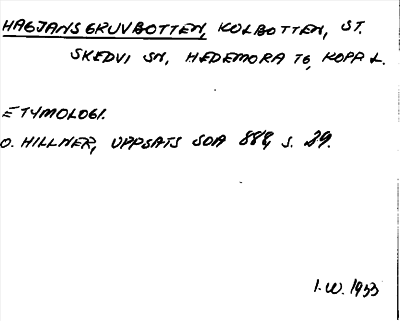 HAGJANS GRUVBOTTEN, KOLBOTTEN, ST.
SKEDVI SN, HEDEMORA TG, KOPP L.
ETYMOLOGI.
O. HILLNER, UPPSATS SOA 888, S. 29.
I.W. 1953